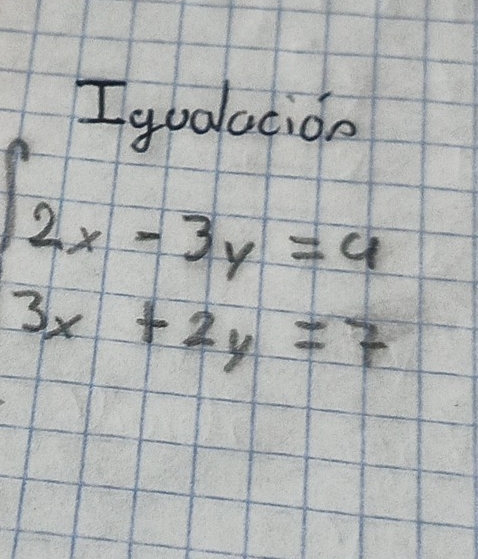 Igualación
2x - 3y = 4
3x + 2y = 7